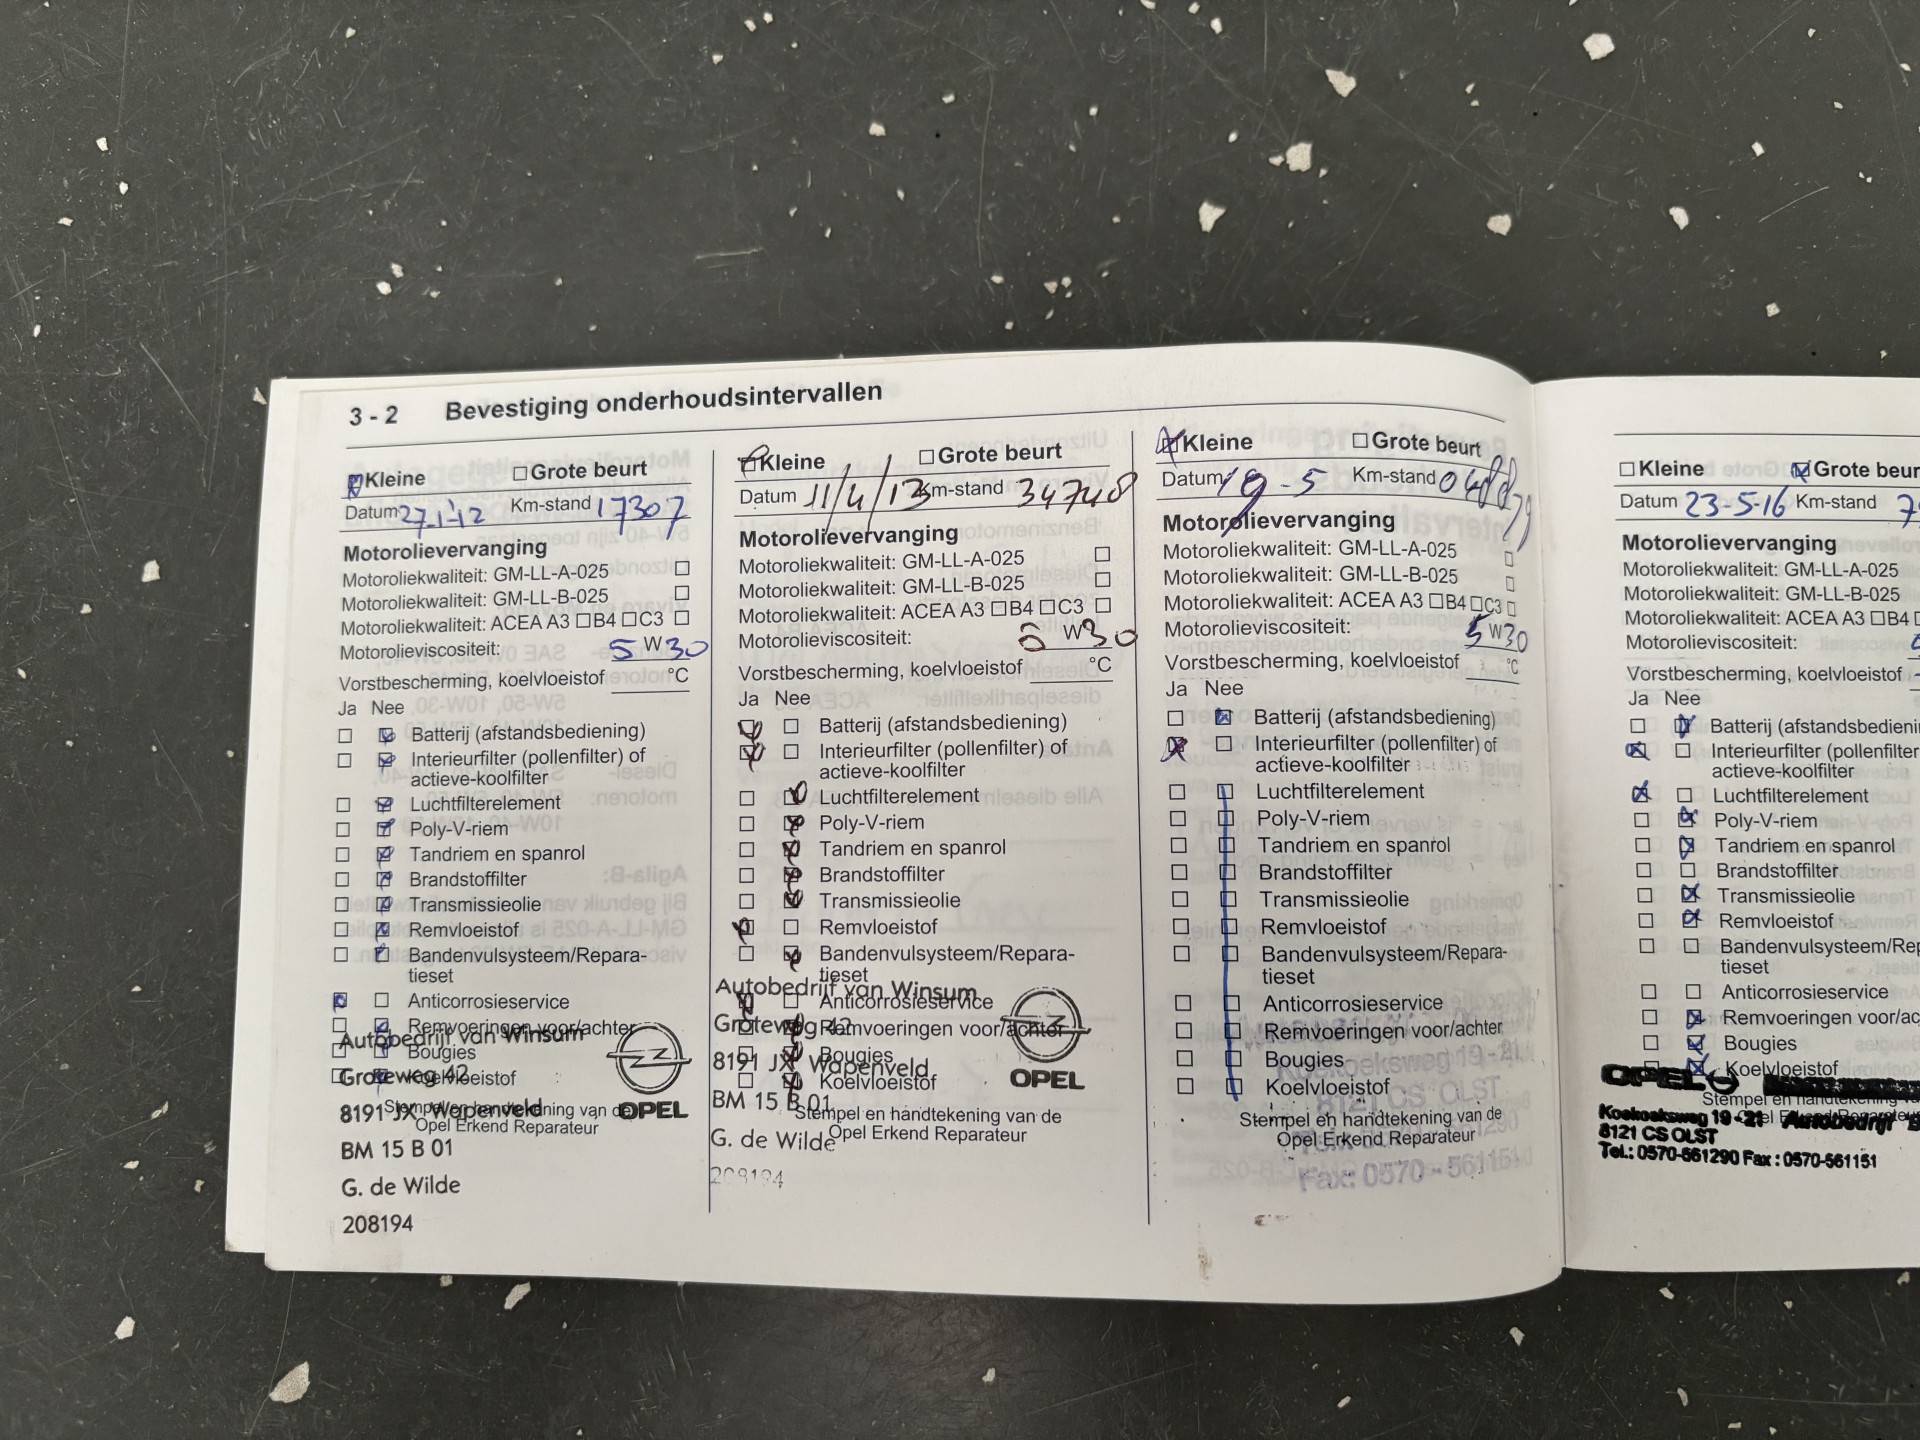 3 - 2 Bevestiging onderhoudsintervallen
Kleine Grote beurt
Datum 27-1-12 Km-stand 17307
Motorolievervanging
Motoroliekwaliteit: GM-LL-A-025
Motoroliekwaliteit: GM-LL-B-025
Motoroliekwaliteit: ACEA A3 B4 C3
Motorolieviscositeit: 5 W 30
Vorstbescherming, koelvloeistof °C
Ja Nee
Batterij (afstandsbediening)
Interieurfilter (pollenfilter) of
actieve-koolfilter
Luchtfilterelement
Poly-V-riem
Tandriem en spanrol
Brandstoffilter
Transmissieolie
Remvloeistof
Bandenvulsysteem/Repara-
tieset
Anticorrosieservice
Remvoeringen voor/achter
Bougies
Koelvloeistof
Stempel en handtekening van de
Opel Erkend Reparateur
Autobedrijf van Winsum
Groteweg 42
8191 JX Wapenveld
BM 15 B 01
G. de Wilde
208194
OPEL
Kleine Grote beurt
Datum 11/4/13 Km-stand 34748
Motorolievervanging
Motoroliekwaliteit: GM-LL-A-025
Motoroliekwaliteit: GM-LL-B-025
Motoroliekwaliteit: ACEA A3 B4 C3
Motorolieviscositeit: W 30
Vorstbescherming, koelvloeistof °C
Ja Nee
Batterij (afstandsbediening)
Interieurfilter (pollenfilter) of
actieve-koolfilter
Luchtfilterelement
Poly-V-riem
Tandriem en spanrol
Brandstoffilter
Transmissieolie
Remvloeistof
Bandenvulsysteem/Repara-
tieset
Anticorrosieservice
Remvoeringen voor/achter
Bougies
Koelvloeistof
Stempel en handtekening van de
Opel Erkend Reparateur
Autobedrijf van Winsum
Groteweg 42
8191 JX Wapenveld
BM 15 B 01
G. de Wilde
208194
OPEL
Kleine Grote beurt
Datum 19-5 Km-stand
Motorolievervanging
Motoroliekwaliteit: GM-LL-A-025
Motoroliekwaliteit: GM-LL-B-025
Motoroliekwaliteit: ACEA A3 B4 C3
Motorolieviscositeit: 5 W 30
Vorstbescherming, koelvloeistof °C
Ja Nee
Batterij (afstandsbediening)
Interieurfilter (pollenfilter) of
actieve-koolfilter
Luchtfilterelement
Poly-V-riem
Tandriem en spanrol
Brandstoffilter
Transmissieolie
Remvloeistof
Bandenvulsysteem/Repara-
tieset
Anticorrosieservice
Remvoeringen voor/achter
Bougies
Koelvloeistof
Stempel en handtekening van de
Opel Erkend Reparateur
Koekoeksweg 19 - 21
8121 CS OLST
Fax: 0570 - 561151
Kleine Grote beur
Datum 23-5-16 Km-stand
Motorolievervanging
Motoroliekwaliteit: GM-LL-A-025
Motoroliekwaliteit: GM-LL-B-025
Motoroliekwaliteit: ACEA A3 B4
Motorolieviscositeit:
Vorstbescherming, koelvloeistof
Ja Nee
Batterij (afstandsbedienin
Interieurfilter (pollenfilter
actieve-koolfilter
Luchtfilterelement
Poly-V-riem
Tandriem en spanrol
Brandstoffilter
Transmissieolie
Remvloeistof
Bandenvulsysteem/Rep
tieset
Anticorrosieservice
Remvoeringen voor/ac
Bougies
Koelvloeistof
Stempel en handtekening va
OPEL
Koekoeksweg 19 - 21 Autobedrijf
8121 CS OLST
Tel.: 0570-561290 Fax : 0570-561151